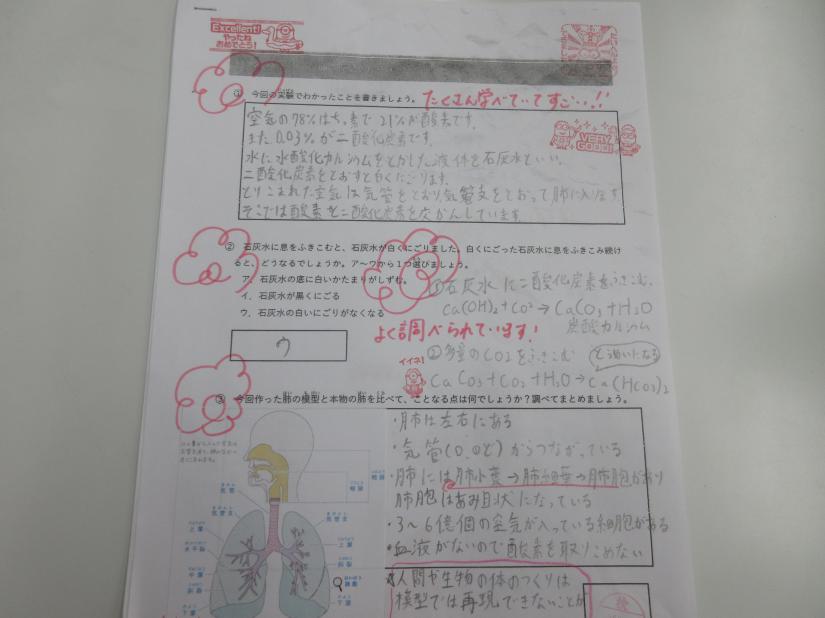 Excellent!
やったね
おめでとう!
① 今回の実験でわかったことを書きましょう。
たくさん学べていてすご…!!
空気の78%はちっ素で21%が酸素です。
また0.03%が二酸化炭素です。
水に水酸化カルシウムをとかした液体を石灰水といい、
二酸化炭素をとおすと白くにごります。
とりこまれた空気は気管をとおり、気管支をとおって肺に入ります
そこでは酸素と二酸化炭素を交かんしています。
VERY GOOD!
② 石灰水に息をふきこむと、石灰水が白くにごりました。白くにごった石灰水に息をふきこみ続け
ると、どうなるでしょうか。ア〜ウから1つ選びましょう。
ア、石灰水の底に白いかたまりがしずむ。
イ、石灰水が黒くにごる
ウ、石灰水の白いにごりがなくなる
ウ
①石灰水に二酸化炭素をふきこむ、
Ca(OH)2+CO2→CaCO3+H2O
炭酸カルシウム
よく調べられています!
②多量のCO2をふきこむ
とう明になる
イイネ!
CaCO3+CO2+H2O→Ca(HCO3)2
③ 今回作った肺の模型と本物の肺を比べて、ことなる点は何でしょうか?調べてまとめましょう。
・肺は左右にある
・気管(口、のど)がつながっている
・肺には肺小葉→肺細葉→肺胞があり
肺胞はあみ目状になっている
・3〜6億個の空気が入っている細胞がある
・血液がないので酸素を取りこめない
人間や生物の体のつくりは
模型では再現できないことが
気管
気管支
上葉
水平裂
中葉
斜裂
下葉
喉頭
気管
気管支
上葉
斜裂
下葉